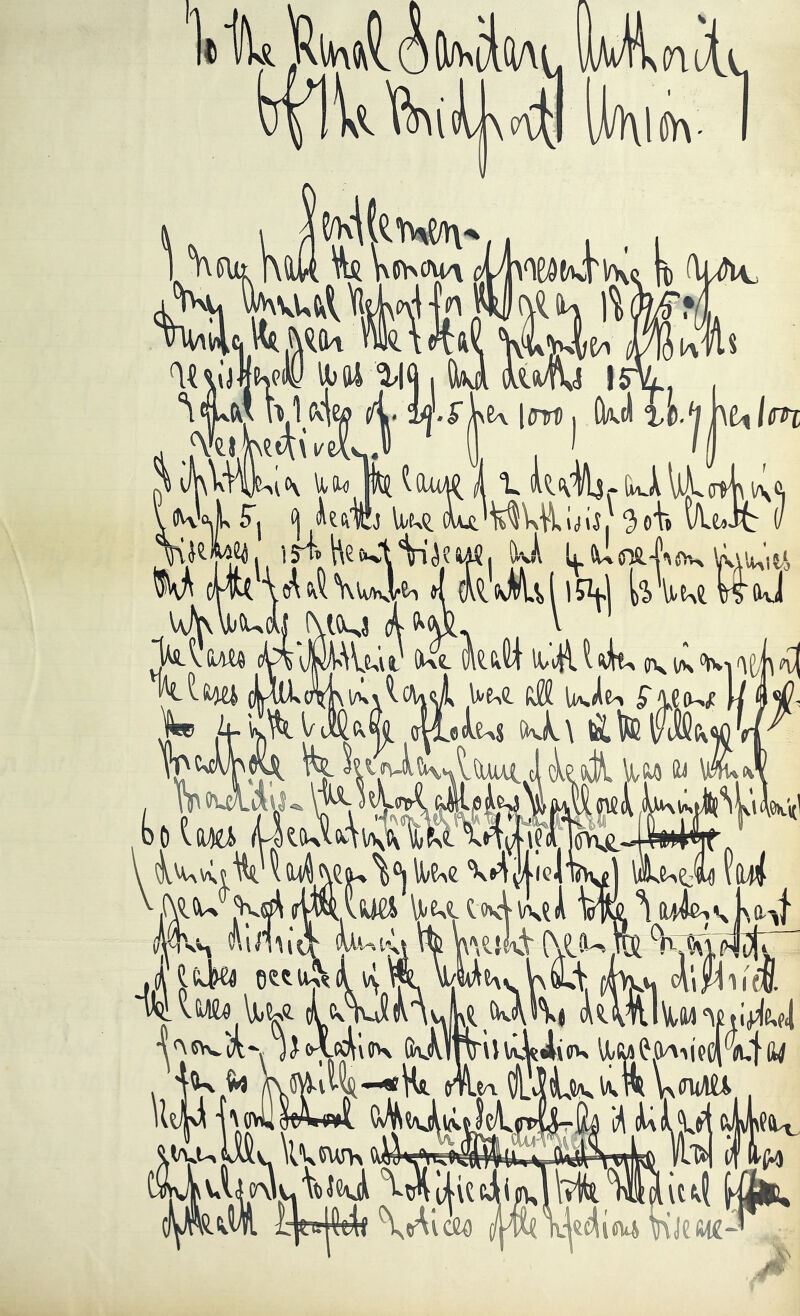 To the Rural Sanitary Authority
Of The Bridport Union.
Gentlemen-
I now have the honour of presenting to you
my Annual Report for the year 1895.
During the year the total number of Births
registered was 219, and deaths 154,
equal to rates of. 29.5 per 1000, and 20.7 per 1000
respectively.
Diphtheria was the cause of 2 deaths- and Whooping
Cough 5, 9 deaths were due to Phthisis, 30 to Chest
Diseases, 15 to Heart Disease, and 4 arose from injuries
Out of the total number of deaths (154) 63 were 65 and
upwards years of age.
The Cases of Diphtheria are dealt with later on in my report
The Cases of Whooping Cough were all under 5 years of age-
4 in the Village of Loders and 1 in the Village of
Bradpole the Secondary Cause of death was as usual
Bronchitis- The School at Loders was closed during the Epidemic
from
60 Cases of Scarlatina were notified to me
(during the last year 89 were notified to me) whereas last
year most of the Cases were confined to the Eastern part
of my district during the present year the majority
of cases occured in the Western part of my district.
The Cases were of a mild type and no death was registered
from it- Isolation and Disinfection was carried out as
far as possible - the other Children in the houses
kept from School attending Schools- As it did not appear
in the district
generally known that it was
Compulsory to send Notification to the Medical Officer
of Health Leaflets Notices of the Infectious Disease-